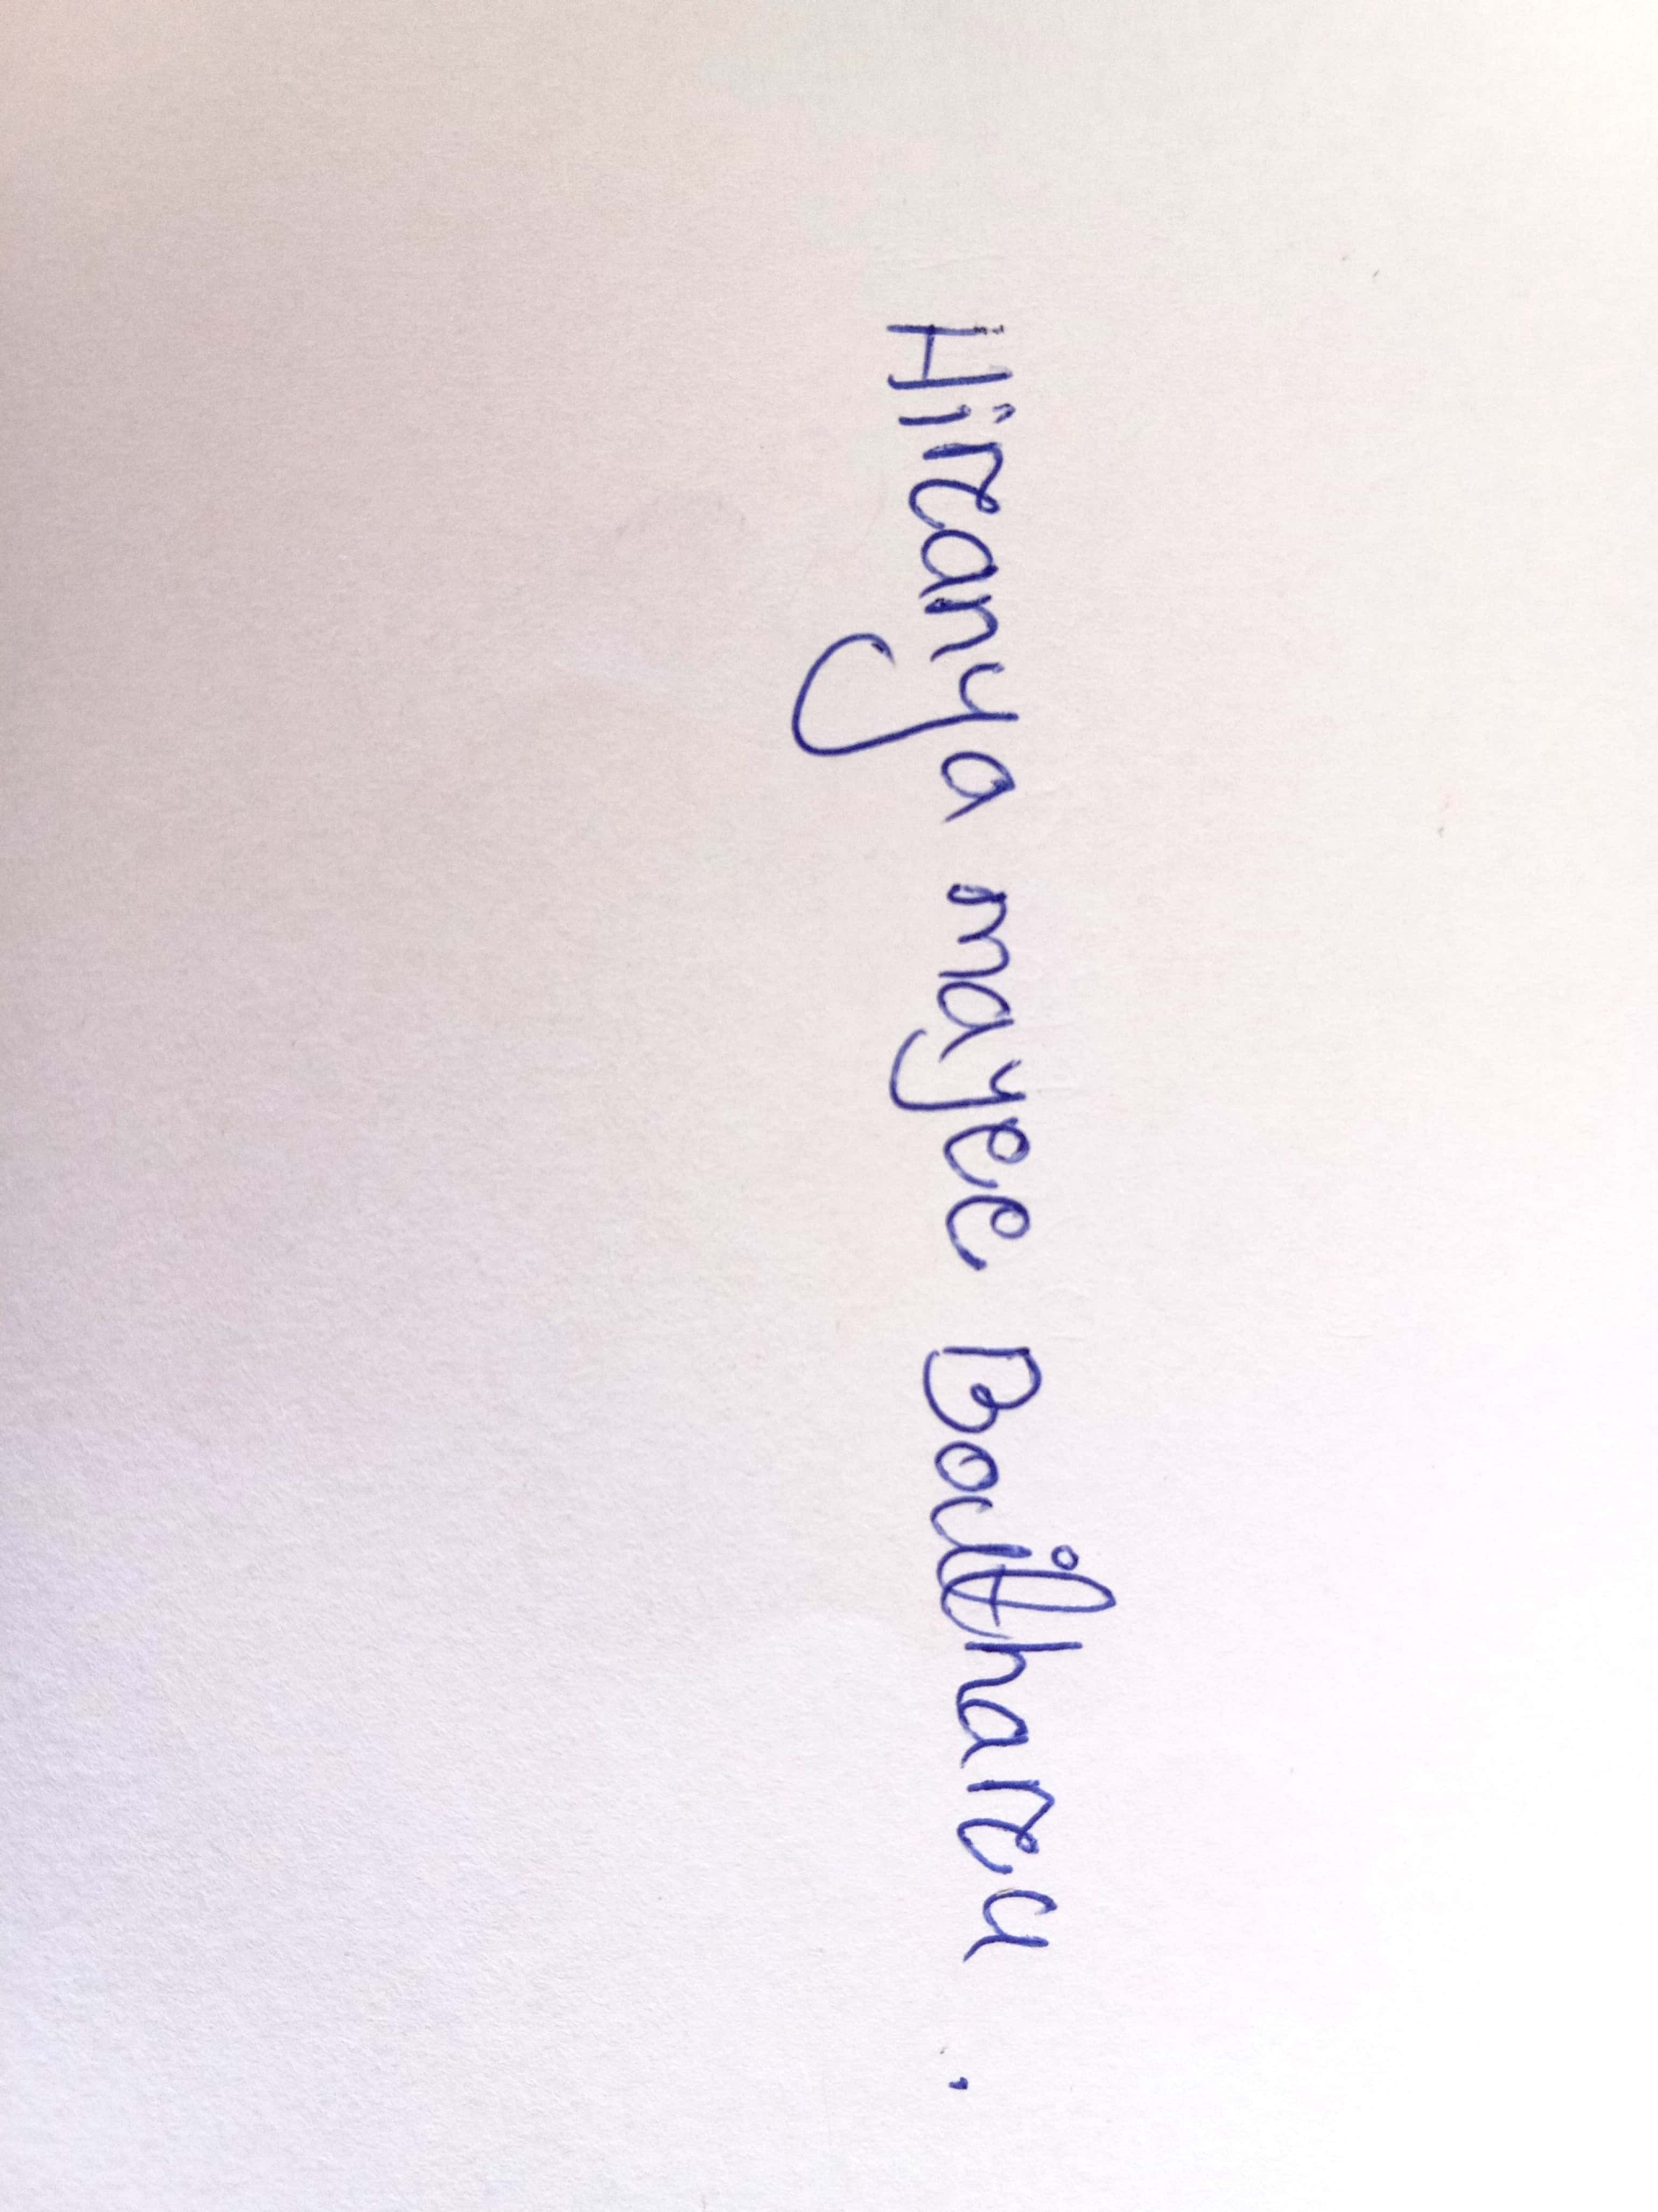 Hiranya mayee Boitharu .